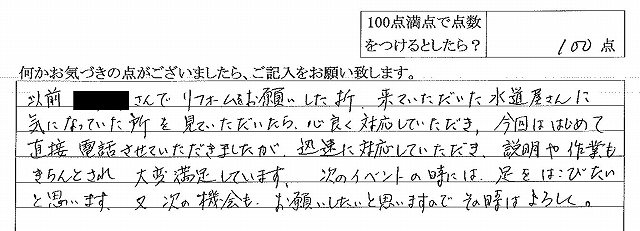 100点満点で点数
をつけるとしたら?
100 点
何かお気づきの点がございましたら、ご記入をお願い致します。
以前 さんで リフォームをお願いした折、来ていただいた 水道屋さんに
気になっていた所を見ていただいたら、心良く対応していただき、今回ははじめて
直接電話させていただきましたが、迅速に対応していただき、説明や作業も
きちんとされ 大変満足しています。 次のイベントの時には、足をはこびたい
と思います。 又 次の機会も お願いしたいと思いますので その時は よろしく。